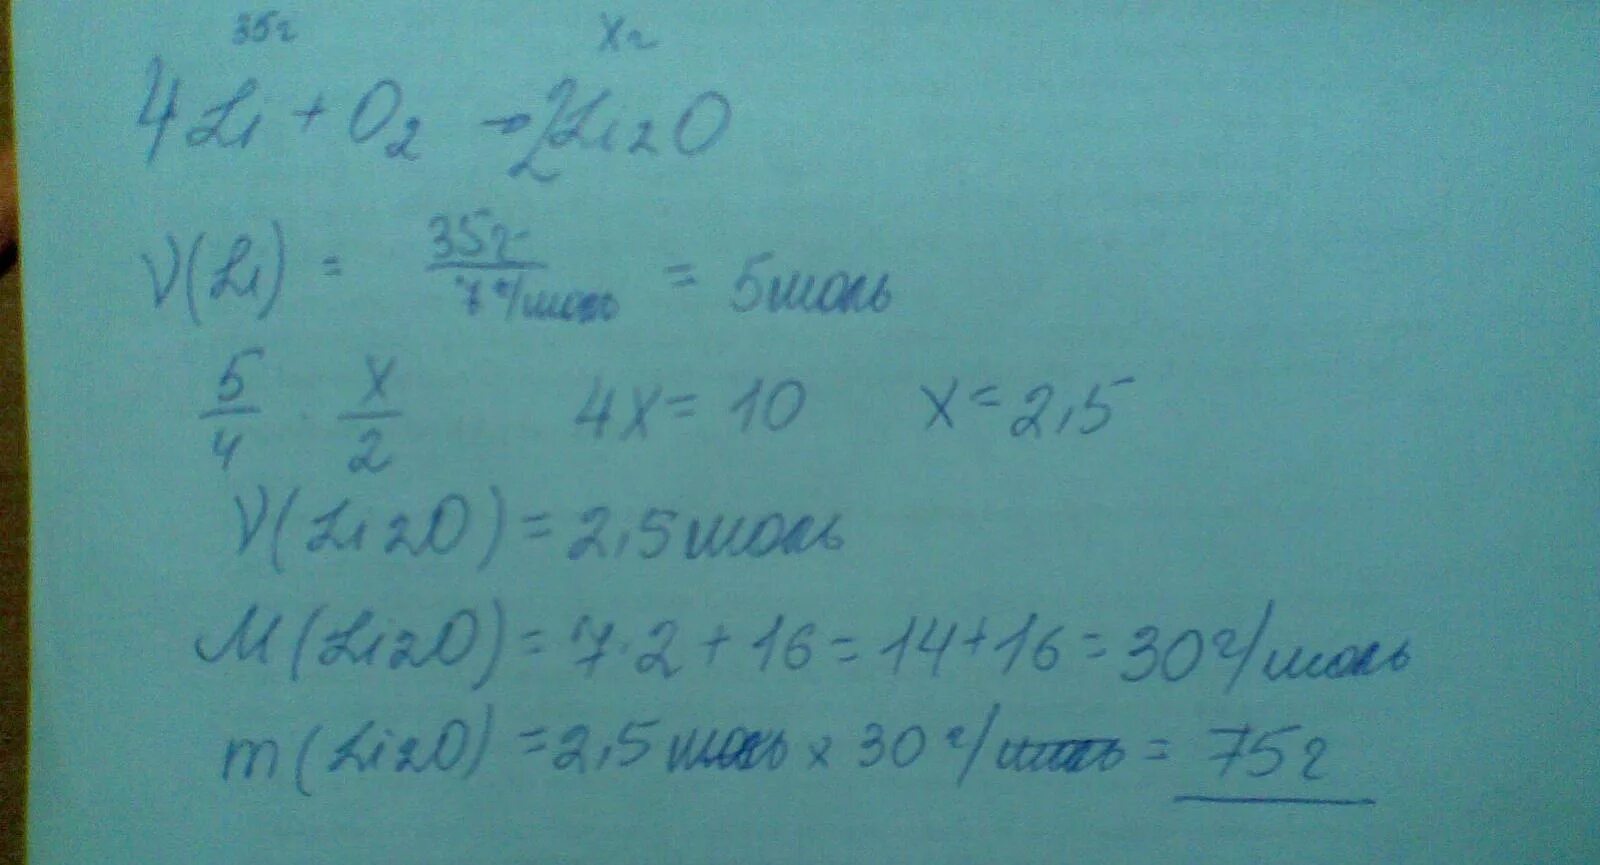 35г хг
4Li + O2 → 2Li2O
ν(Li) = 35г / 7г/моль = 5моль
5/4 · x/2 4x = 10 x = 2,5
ν(Li2O) = 2,5моль
M(Li2O) = 7·2 + 16 = 14+16 = 30г/моль
m(Li2O) = 2,5моль x 30г/моль = 75г